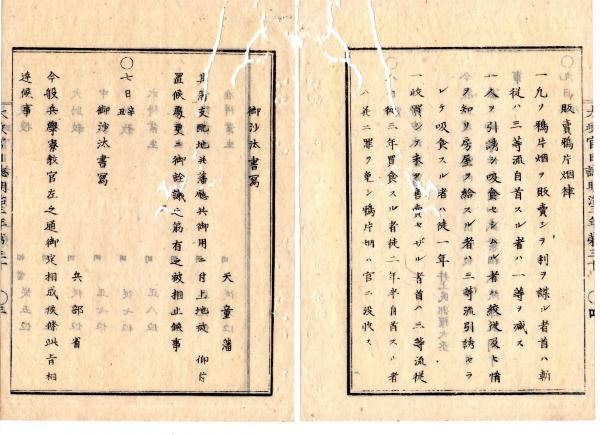 販賣鴉片烟律
一凡ソ鴉片烟ヲ販賣シ利ヲ謀ル者首ハ斬
従ハ三等流自首スル者ハ一等ヲ減ス
一人ヲ引誘シ吸食セシムル者ハ絞従及ヒ情
ヲ知リ房屋ヲ給スル者ハ三等流引誘セラ
レテ吸食スル者ハ徒一年
一收買シテ未タ售賣セザル者首ハ三等流従
徒三年買食スル者徒二年半自首スル者
ハ並ニ罪ヲ免シ鴉片烟ハ官ニ沒收ス
御沙汰書寫
天童藩
其藩支配地
藩廳共御用ニ付上地被 仰付
置候處更ニ御詮議之筋有之被相止候事
〇七日辛丑
御沙汰書寫
兵部省
今般兵學寮教官左之通御定相成候條此旨相
達候事